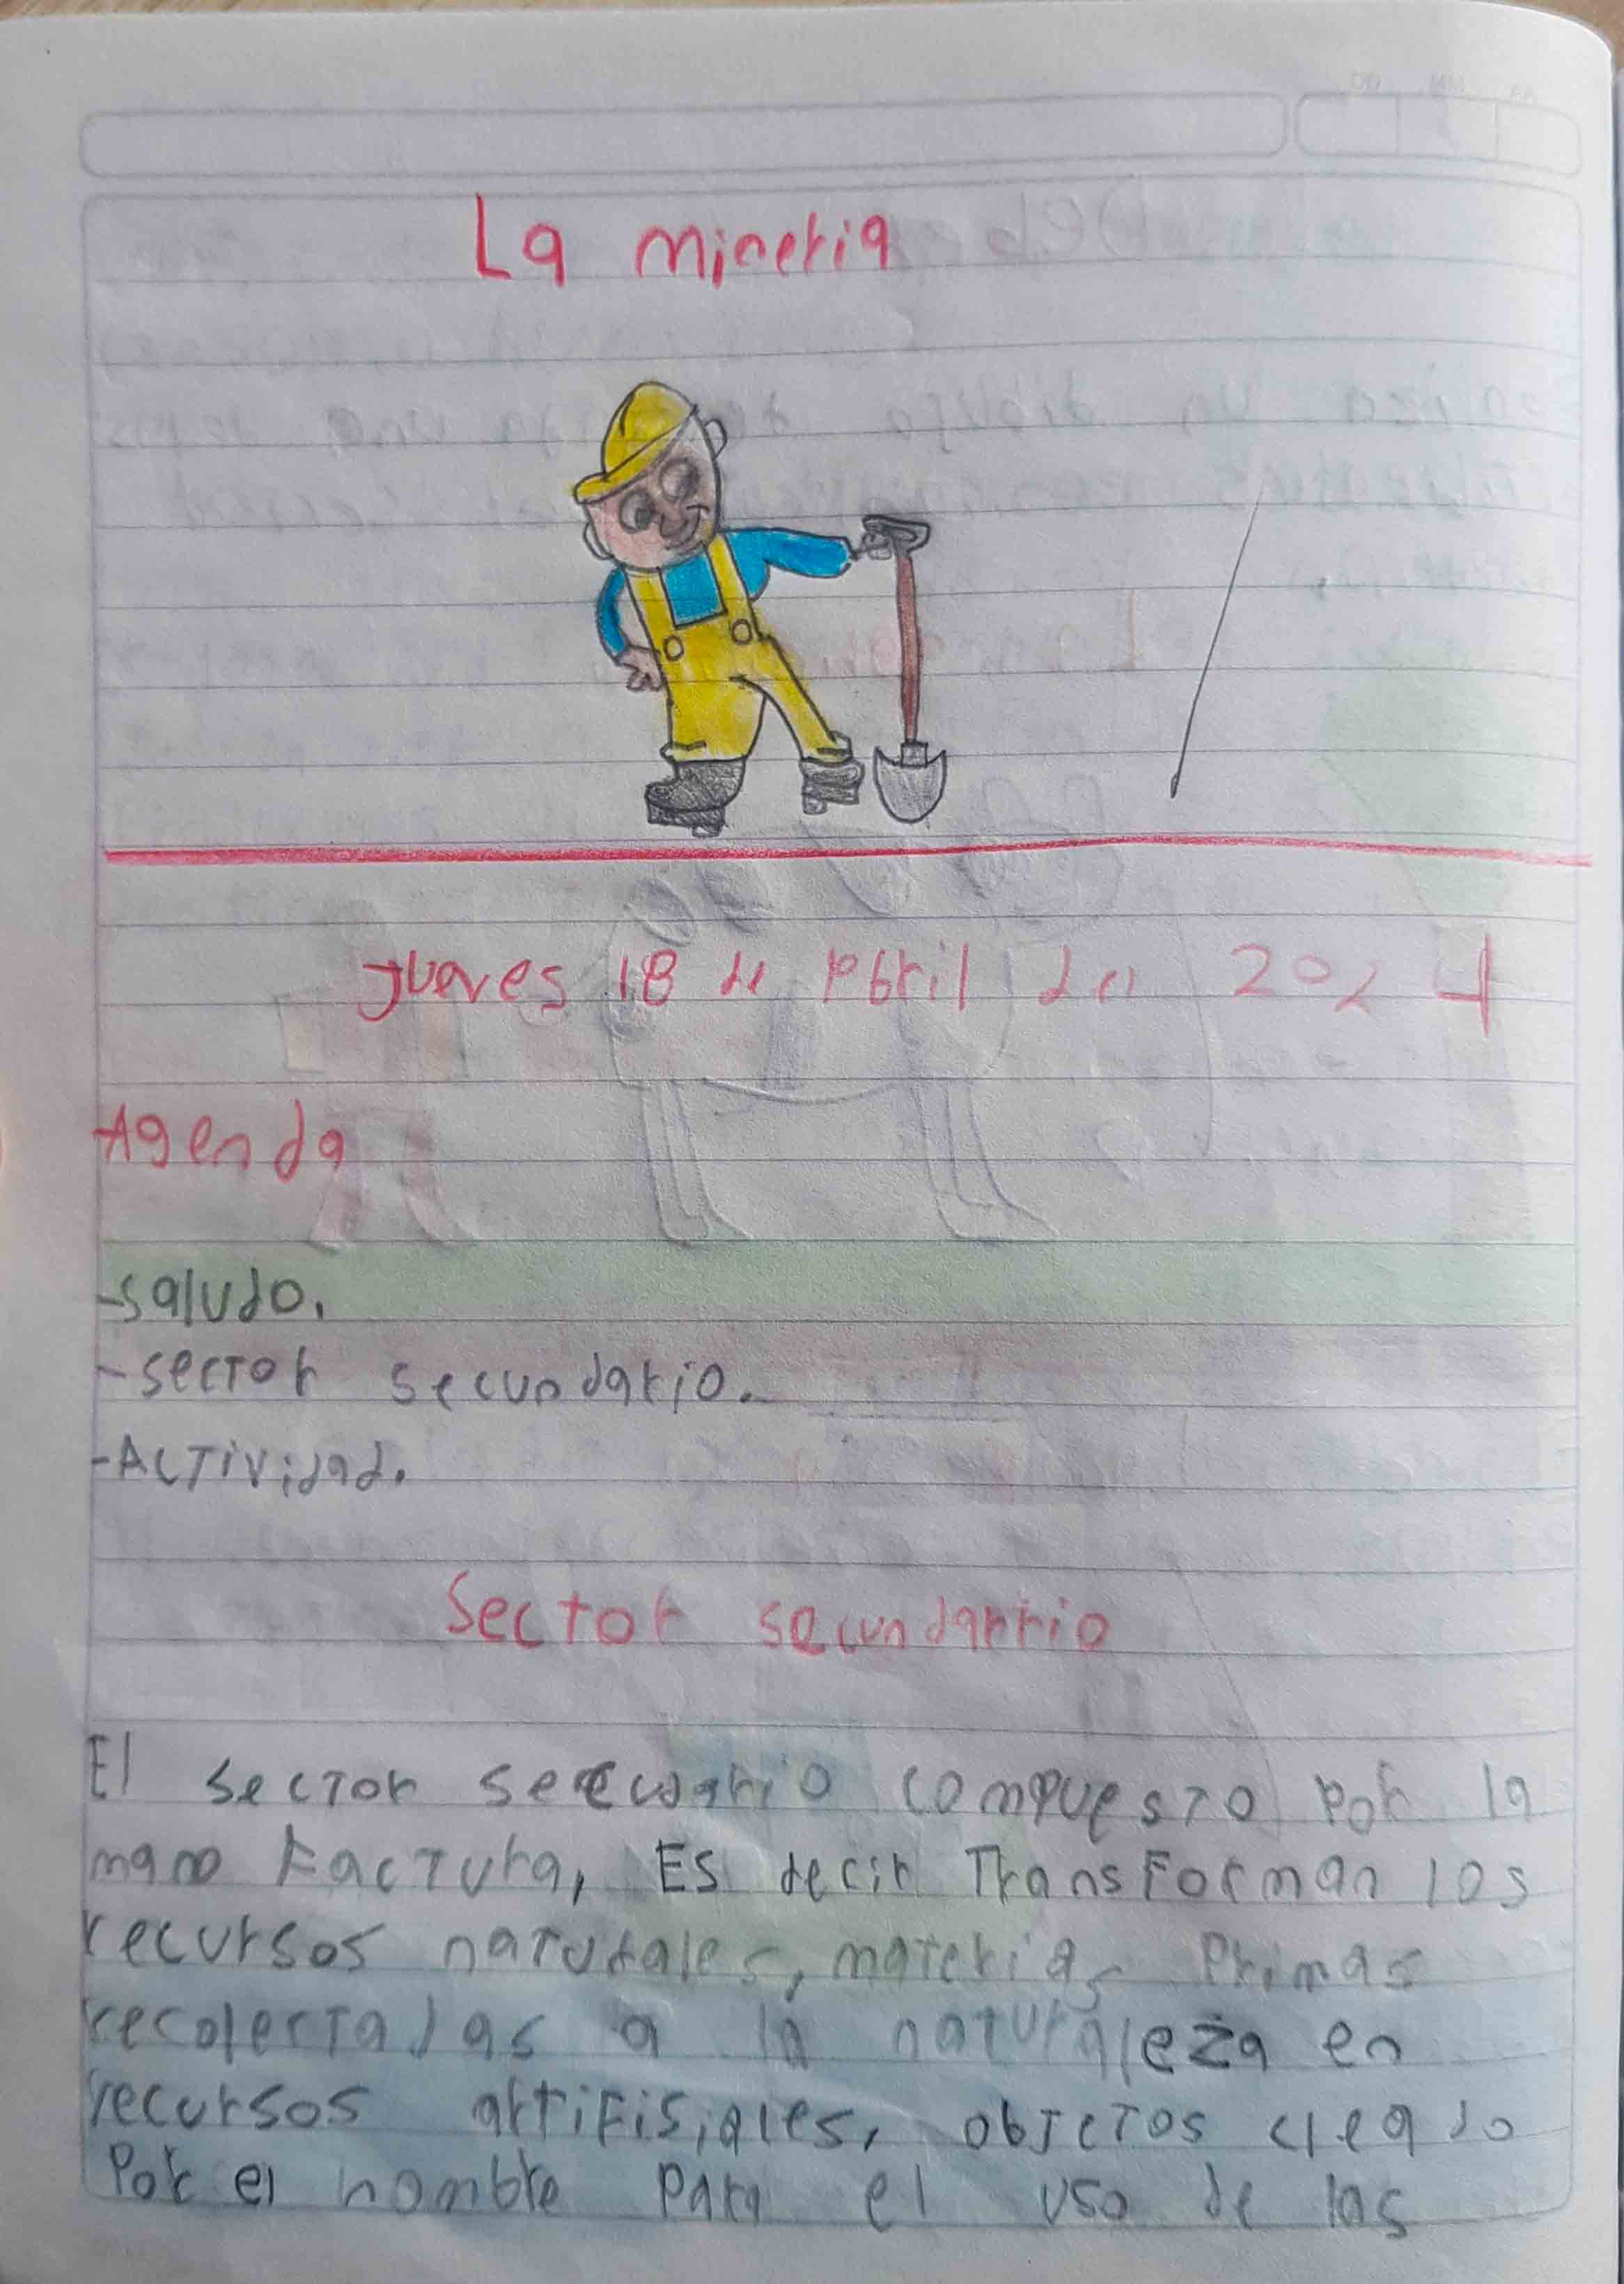 La mineria
Jueves 18 de Abril del 2024
Agenda
-saludo.
-sector secundario.
-Actividad.
Sector secundarrio
El sector serecudario compuesto por la
mano Factura, Es decir TransForman los
recursos naturales, materias Primas
recolectadas a la naturaleza en
recursos artifisiales, objetos creado
Por el hombre para el uso de las